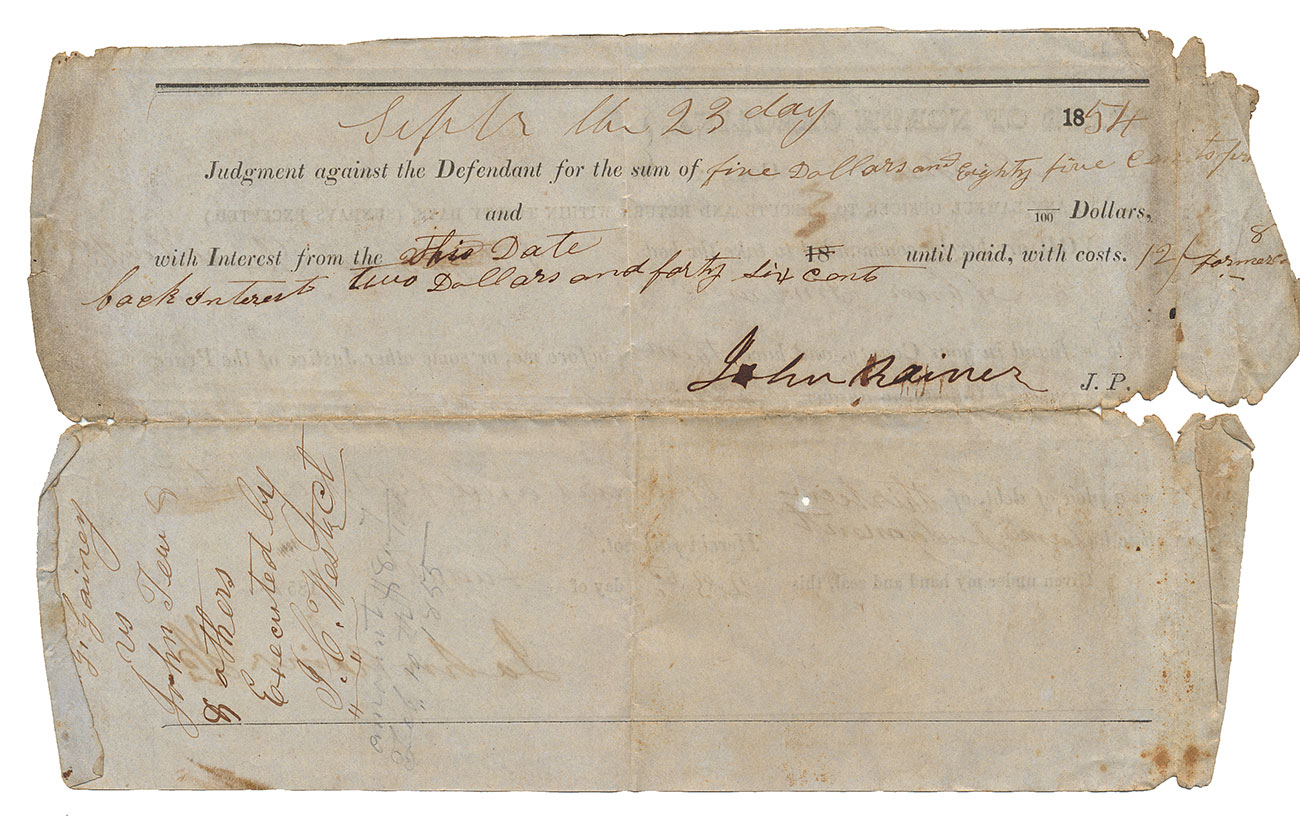 Septr the 23 day 1854
Judgment against the Defendant for the sum of five Dollars and Eighty five Cents
and /100 Dollars,
with Interest from the this Date 18 until paid, with costs. 12/ former
back Interest two Dollars and forty six Cents
John Rainer J. P.
Gainey
vs
John Tew
& others
Executed by
J. C. West Ct